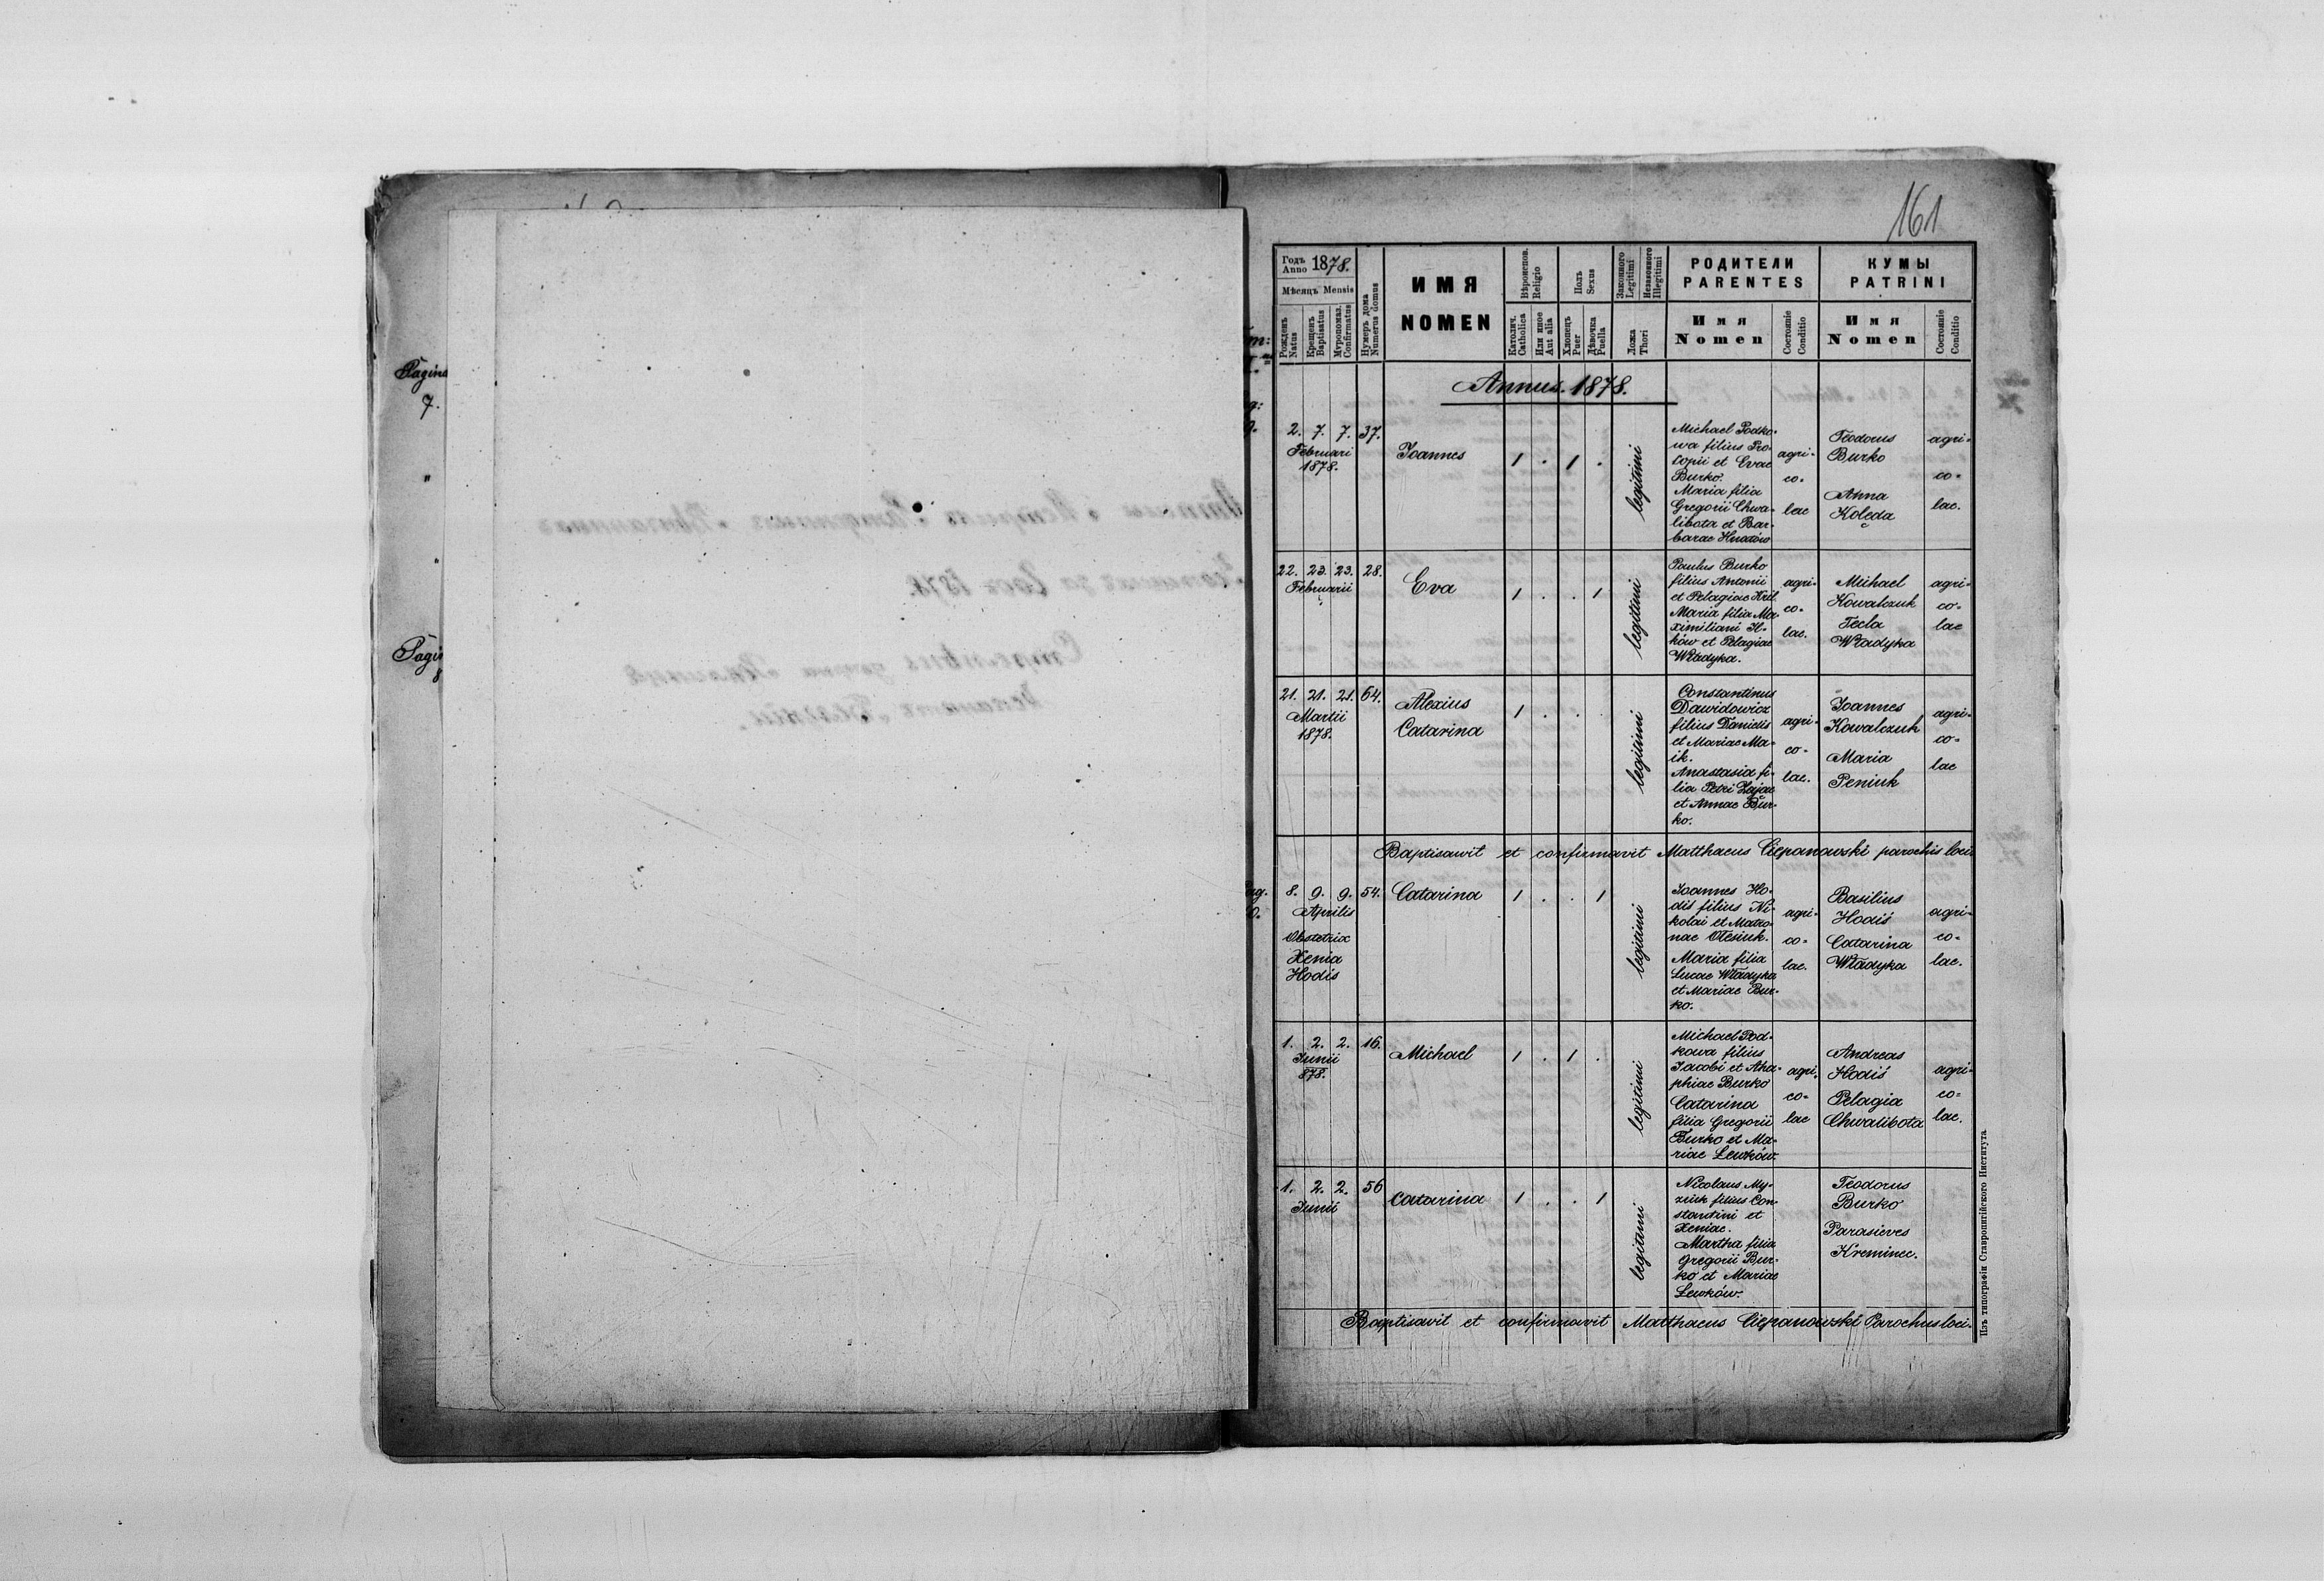 161
Pagina
7.
"
"
Годъ
Anno 1878.
Мѣсяцъ Mensis
Рожденъ
Natus
Крещенъ
Baptisatus
Муропомаз.
Confirmatus
Нумеръ дома
Numerus domus
ИМЯ
NOMEN
Вѣроиспов.
Religio
Католич.
Catholica
Или иное
Aut alia
Полъ
Sexus
Хлопецъ
Puer
Дѣвочка
Puella
Законного
Legitimi
Незаконного
Illegitimi
Ложа
Thori
РОДИТЕЛИ
PARENTES
Имя
Nomen
Состояніе
Conditio
КУМЫ
PATRINI
Имя
Nomen
Состояніе
Conditio
Annus. 1878.
2. 7. 7. 37.
Februari
1878.
Joannes
1 . 1 .
legitimi
Michael Podko-
wa filius Pro-
copii et Evae
Burko.
Maria filia
Gregorii Chwa-
libota et Bar-
barae Hnatów
agri-
co-
lae
Teodorus
Burko
Anna
Koleda
agri-
co-
lae.
22. 23. 23. 28.
Februarii
Eva
1 . . 1
legitimi
Paulus Burko
filius Antonii
et Pelagiae Kril
Maria filia Ma-
ximiliani H-
ków et Pelagiae
Władyka.
agri-
co-
lae.
Michael
Kowalczuk
Tecla
Władyka
agri-
co-
lae
21. 21. 21. 64.
Martii
1878.
Alexius
Catarina
1 . .
legitimi
Constantinus
Dawidowicz
filius Danielis
et Mariae Ma-
ik.
Anastasia fi-
lia Petri Zajac
et Annae Bur-
ko.
agri-
co-
lae.
Joannes
Kowalczuk
Maria
Peniuk
agri-
co-
lae
Baptisavit et confirmavit Matthaeus Ciepanowski parochus loci
8. 9. 9. 54.
Aprilis
Obstetrix
Xenia
Hodiś
Catarina
1 . . 1
legitimi
Joannes Ho-
diś filius Ni-
kolai et Matro-
nae Olesiuk.
Maria filia
Lucae Władyka
et Mariae Bur-
ko.
agri-
co-
lae.
Basilius
Hodiś
Catarina
Władyka
agri-
co-
lae.
1. 2. 2. 16.
Junii
878.
Michael
1 . 1 .
legitimi
Michael Pod-
kowa filius
Jacobi et Aha-
phiae Burko
Catarina
filia Gregorii
Burko et Ma-
riae Lewków.
agri-
co-
lae
Andreas
Hodiś
Pelagia
Chwalibota
agri-
co-
lae.
1. 2. 2. 56
Junii
Catarina
1 . . 1
legitimi
Nicolaus My-
ziuk filius Con-
stantini et
Xeniae.
Martha filia
Gregorii Bur-
ko et Mariae
Lewków.
Teodorus
Burko
Parasieves
Kreminec.
Baptisavit et confirmavit Matthaeus Ciepanowski Parochus loci.
Изъ типографіи Ставропигійского Института.